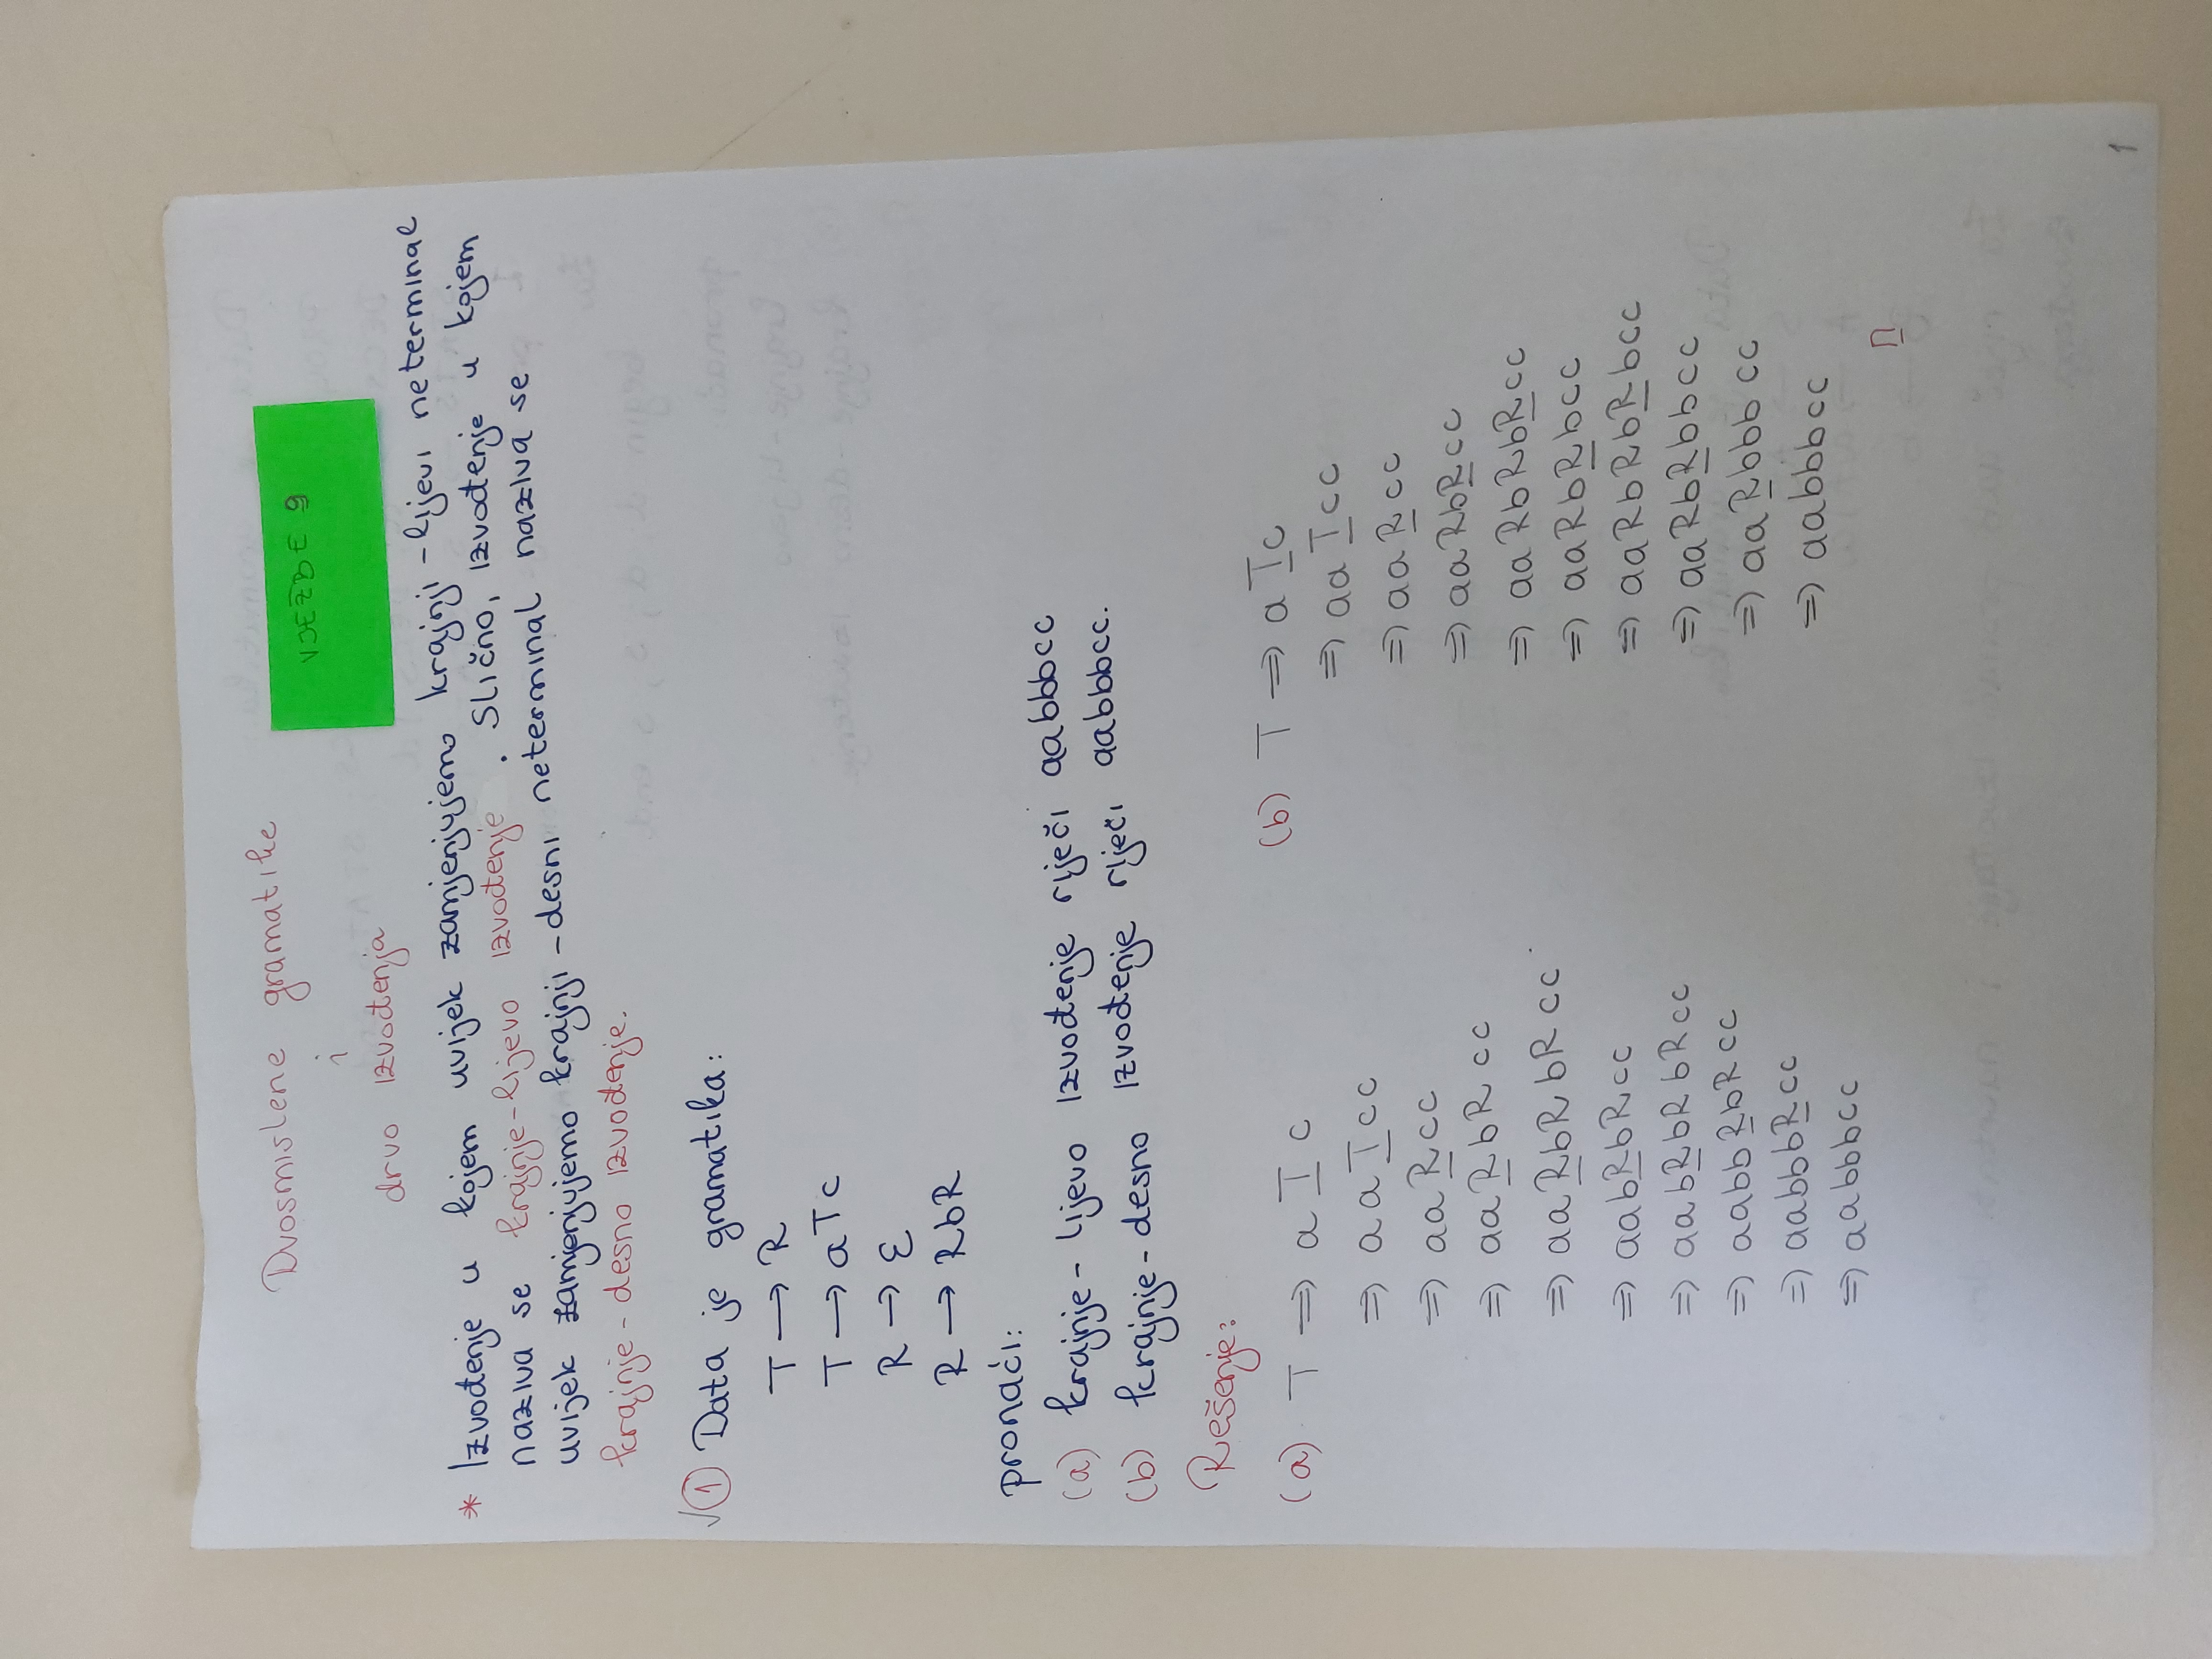 Dvosmislene gramatike
i
drvo izvođenja
VJEŽBE 9
* Izvođenje u kojem uvijek zamjenjujemo krajnji-lijevi neterminal
naziva se krajnje-lijevo izvođenje. Slično, izvođenje u kojem
uvijek zamjenjujemo krajnji-desni neterminal naziva se
krajnje-desno izvođenje.
√ ① Data je gramatika:
T → R
T → aTc
R → ε
R → RbR
pronaći:
(a) krajnje-lijevo izvođenje riječi aabbbcc
(b) krajnje-desno izvođenje riječi aabbbcc.
Rešenje:
(a) T ⇒ aTc
⇒ aaTcc
⇒ aaRcc
⇒ aaRbRcc
⇒ aaRbRbRcc
⇒ aabRbRcc
⇒ aabRbRbRcc
⇒ aabbRbRcc
⇒ aabbbRcc
⇒ aabbbcc
(b) T ⇒ aTc
⇒ aaTcc
⇒ aaRcc
⇒ aaRbRcc
⇒ aaRbRbRcc
⇒ aaRbRbcc
⇒ aaRbRbRbcc
⇒ aaRbRbbcc
⇒ aaRbbbcc
⇒ aabbbcc
1